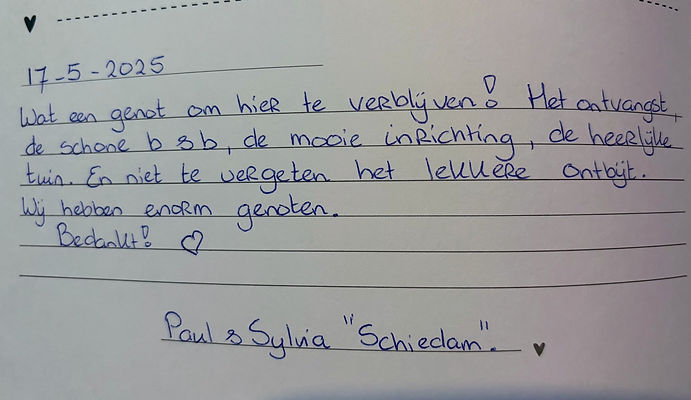 17-5-2025
Wat een genot om hier te verblijven! Het ontvangst,
de schone b & b, de mooie inrichting, de heerlijke
tuin. En niet te vergeten het lekkere ontbijt.
Wij hebben enorm genoten.
Bedankt! ♡
Paul & Sylvia "Schiedam".